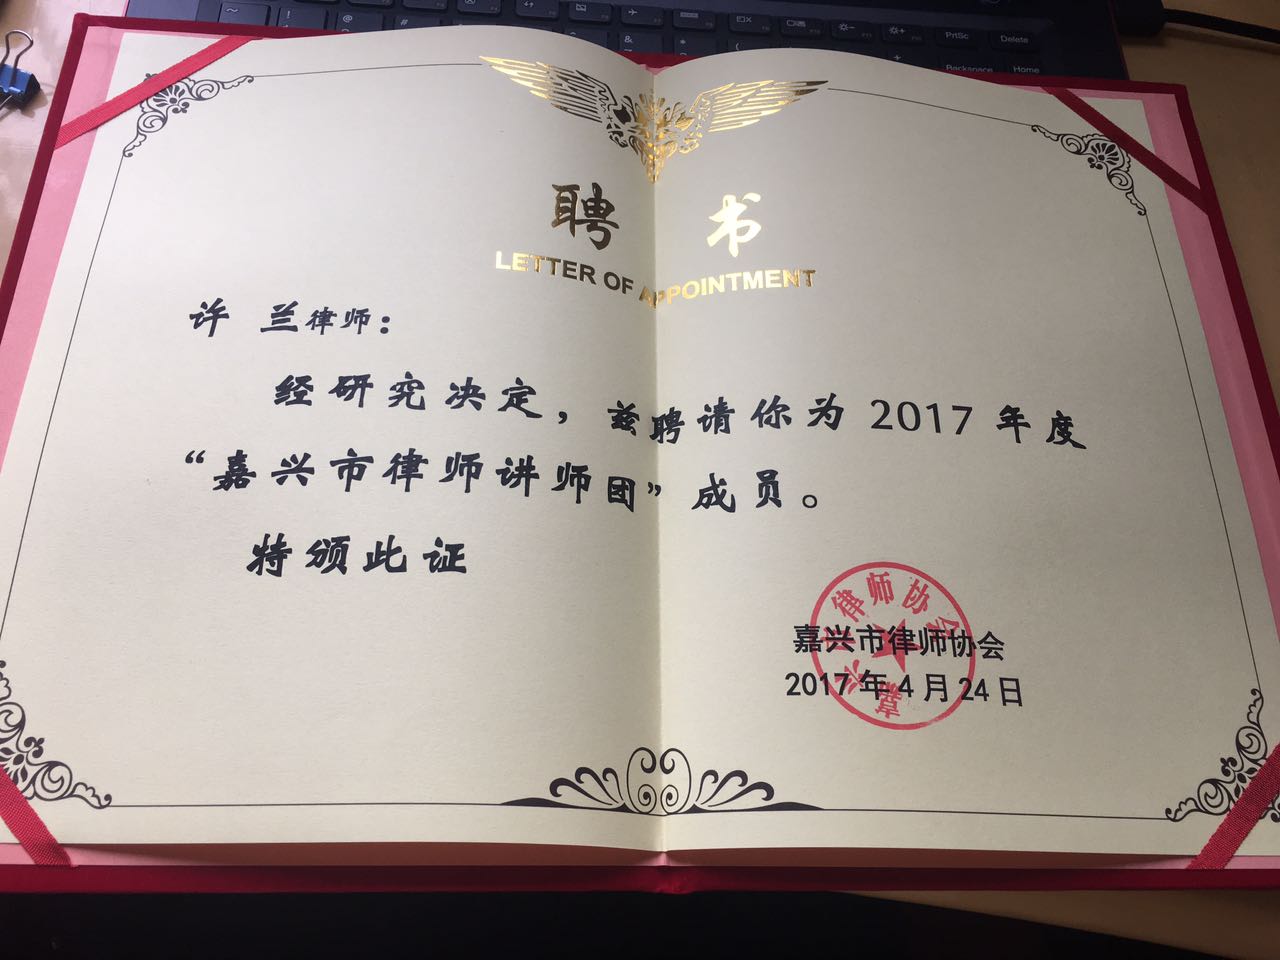 PrtSc
Delete
Backspace
Home
聘 书
LETTER OF APPOINTMENT
许 兰律师：
经研究决定，兹聘请你为 2017 年度
“嘉兴市律师讲师团”成员。
特颁此证
律师协会
嘉兴市律师协会
2017 年 4 月 24 日